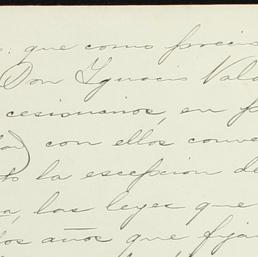 que como preciso
Don Ignacio Vala
cesionarios, en p
con ellos conve
to la escepcion de
a, las leyes que
los años que fija